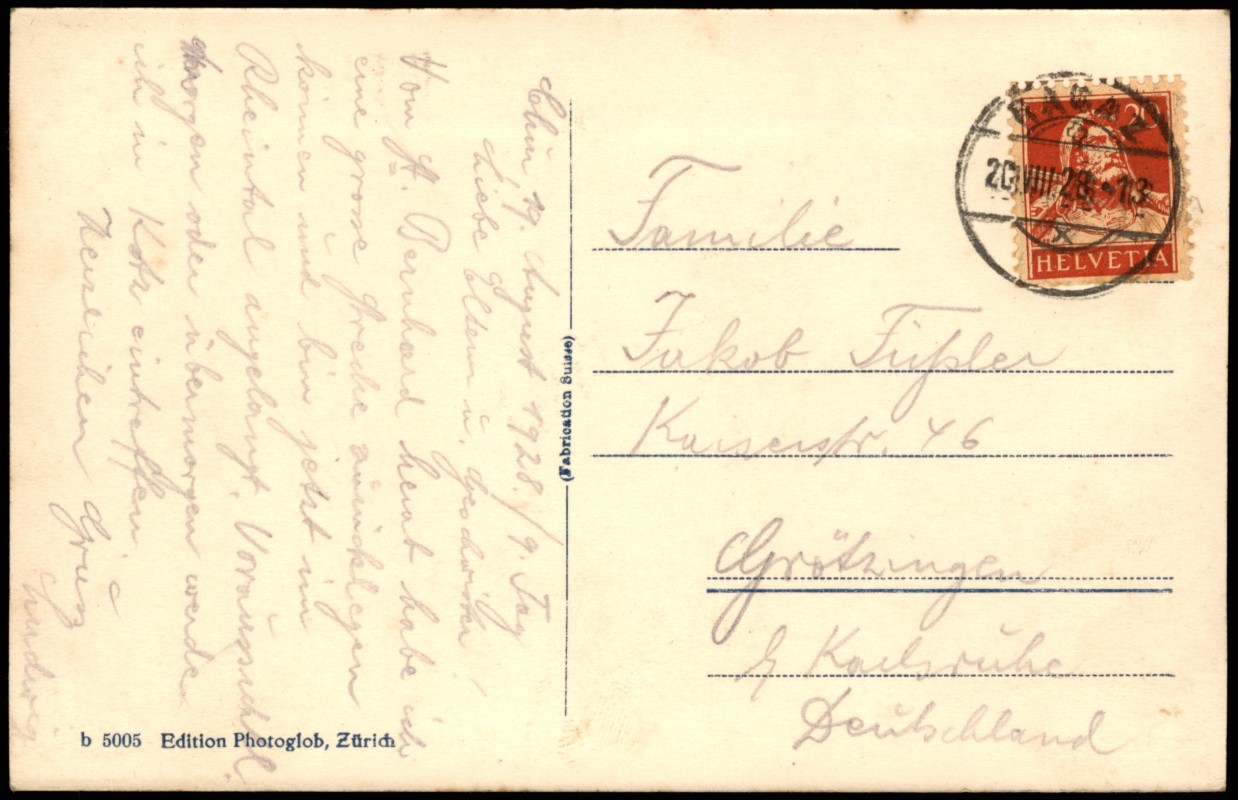 Chur 19. August 1928. / 9. Tag
Liebe Eltern u. Geschwister!
Vom St. Bernhard herab habe ich
eine grose Strecke zurückgelegen
können und bin jetzt im
Rheintal angelangt. Voraussichtl.
morgen oder übermorgen werde
ich in eintreffen.
Herzlichen Gruß
Ludwig
b 5005 Edition Photoglob, Zürich
(Fabrication Suisse)
RAGAZ
20.VIII.28.-13
20
HELVETIA
Familie
Jakob Füßler
Kaiserstr. 46
Grötzingen
b/ Karlsruhe
Deutschland